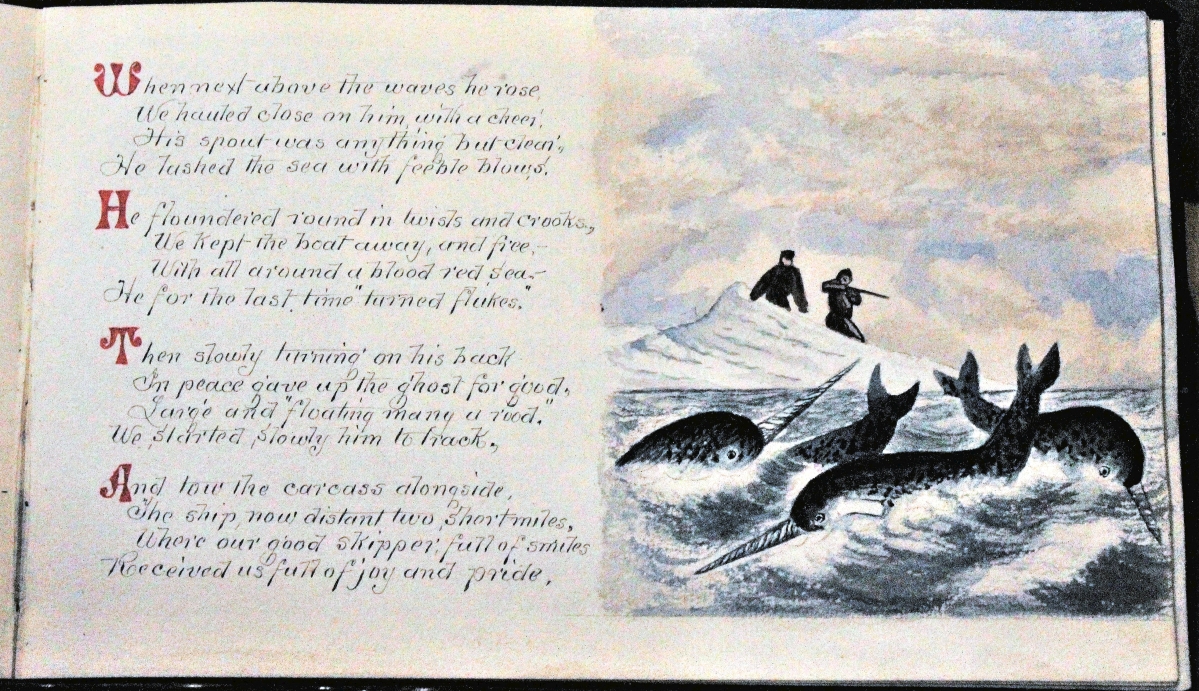 When next above the waves he rose,
We hauled close on him, with a cheer,
His spout was anything but clear,
He lashed the sea with feeble blows.
He floundered round in twists and crooks,
We kept the boat away, and free,-
With all around a blood red sea,-
He for the last time "turned flukes."
Then slowly turning on his back
In peace gave up the ghost for good,
Large and "floating many a rood."
We started slowly him to track,
And tow the carcass alongside,
The ship, now distant two short miles,
Where our good skipper, full of smiles
Received us full of joy and pride.